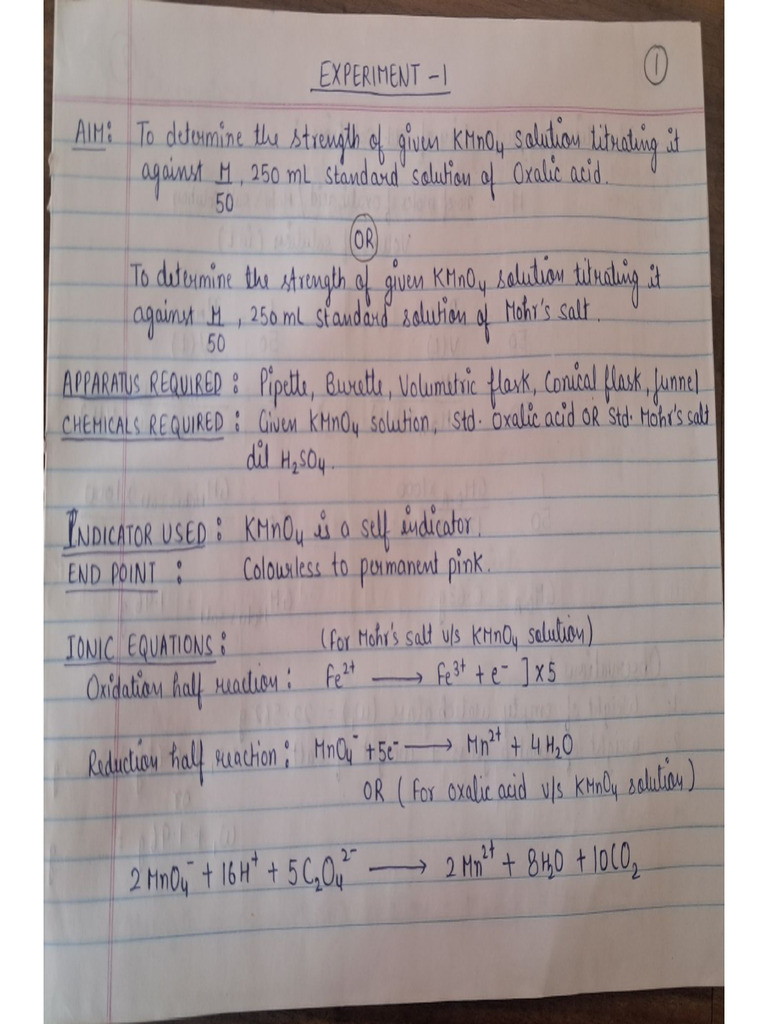 EXPERIMENT - 1
1
AIM: To determine the strength of given KMnO₄ solution titrating it
against M/50, 250 mL standard solution of Oxalic acid.
OR
To determine the strength of given KMnO₄ solution titrating it
against M/50, 250 ml standard solution of Mohr's salt.
APPARATUS REQUIRED: Pipette, Burette, Volumetric flask, Conical flask, funnel
CHEMICALS REQUIRED: Given KMnO₄ solution, Std. Oxalic acid OR Std. Mohr's salt
dil H₂SO₄.
INDICATOR USED: KMnO₄ is a self indicator.
END POINT: Colourless to permanent pink.
IONIC EQUATIONS: (for Mohr's salt v/s KMnO₄ solution)
Oxidation half reaction: Fe²⁺ ⟶ Fe³⁺ + e⁻ ] x 5
Reduction half reaction: MnO₄⁻ + 5e⁻ ⟶ Mn²⁺ + 4H₂O
OR (for oxalic acid v/s KMnO₄ solution)
2MnO₄⁻ + 16H⁺ + 5C₂O₄²⁻ ⟶ 2Mn²⁺ + 8H₂O + 10CO₂